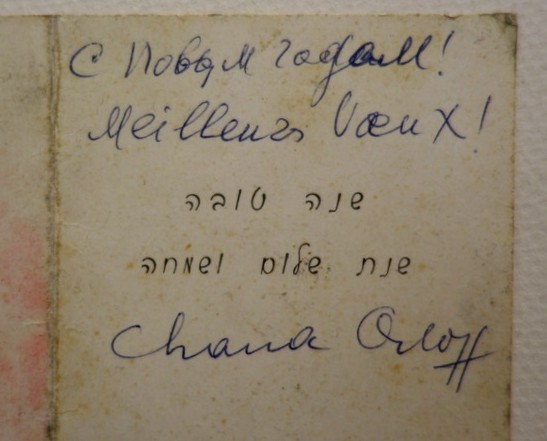 С Новым годом!
Meilleurs Vœux!
שנה טובה
שנת שלום ושמחה
Chana Orloff